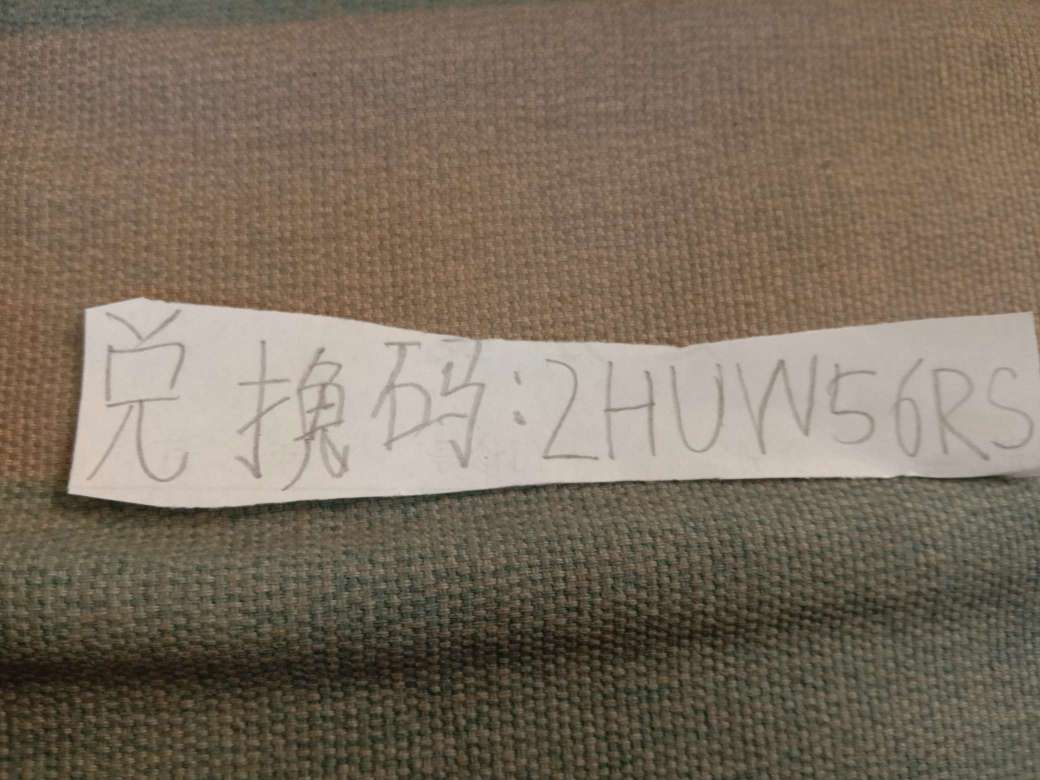 兑换码:2HUW56RS